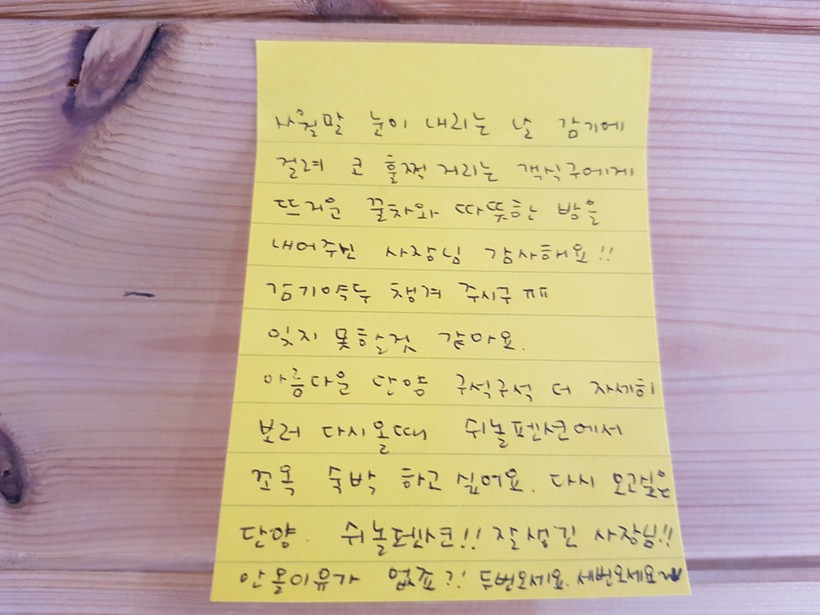 사월말 눈이 내리는 날 감기에
걸려 코 훌쩍거리는 객식구에게
뜨거운 꿀차와 따뜻한 밤을
내어주신 사장님 감사해요!!
감기약두 챙겨 주시구 ㅠㅠ
잊지 못할것 같아요.
아름다운 단양 구석구석 더 자세히
보러 다시올때 쉬놀펜션에서
꼬옥 숙박 하고 싶어요. 다시 오고싶은
단양. 쉬놀펜션!! 잘생긴 사장님!!
안올이유가 없죠?! 두번오세요. 세번오세요~